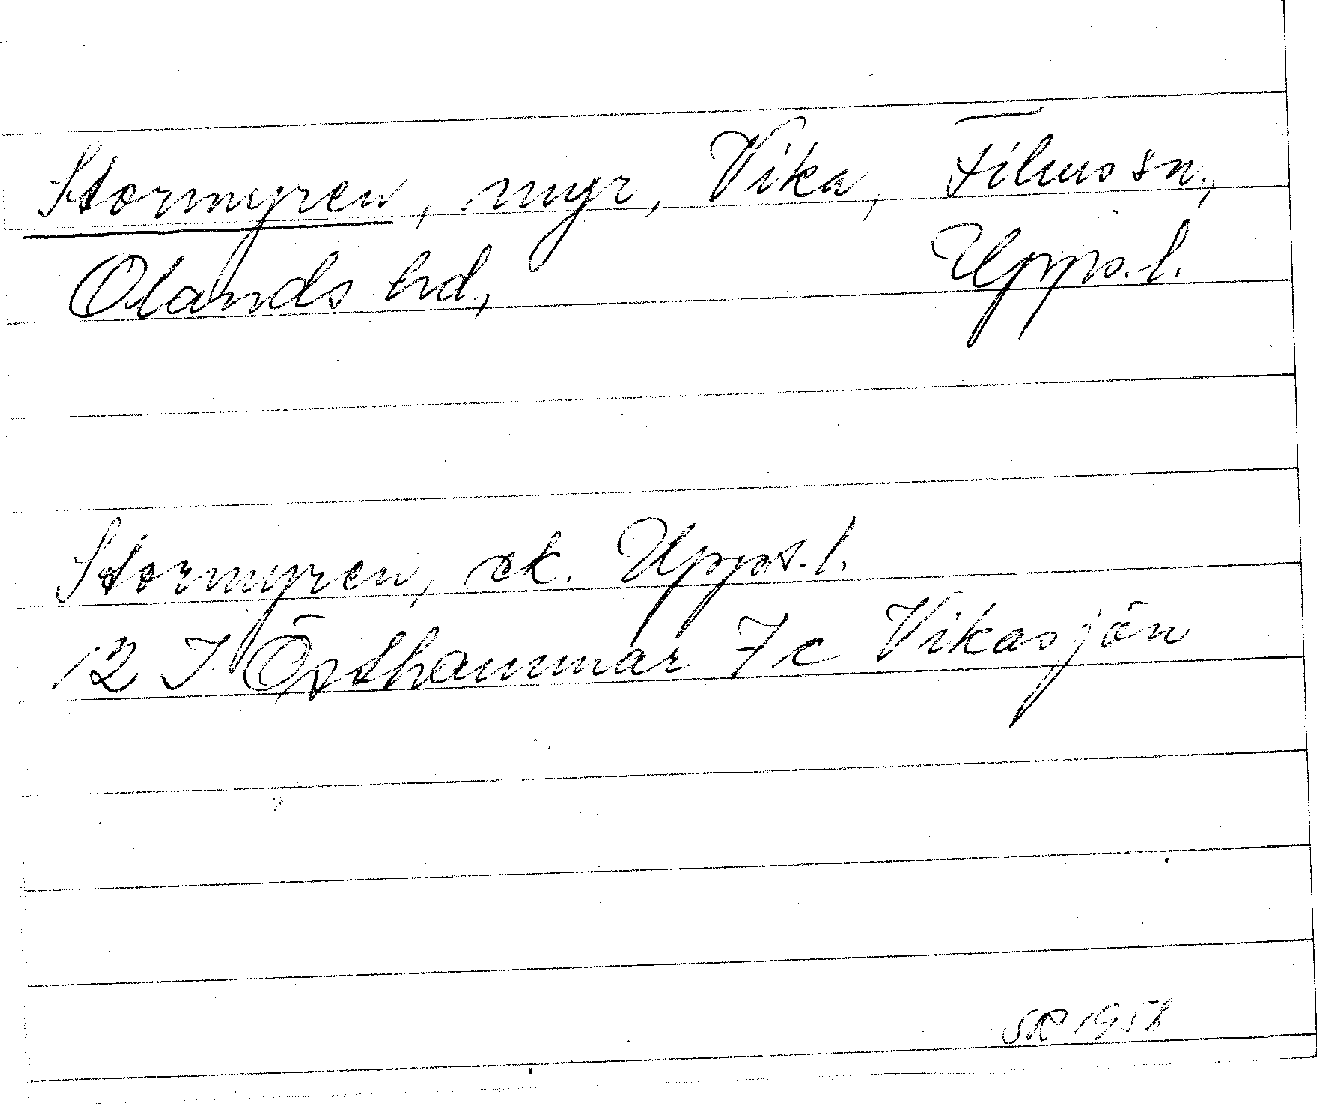 Stormyren, myr, Vika, Films sn.,
Olands hd, Upps. l.
Stormyren, ek. Upps. l.
12 I Östhammar 7c Vikasjön
SR 1958